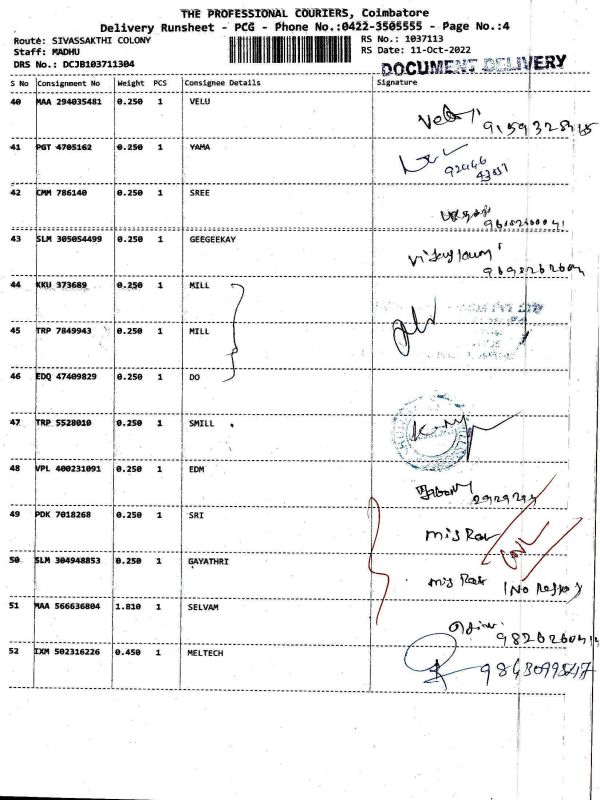 THE PROFESSIONAL COURIERS, Coimbatore
Delivery Runsheet - PCG - Phone No.:0422-3505555 - Page No.:4
Route: SIVASSAKTHI COLONY RS No.: 1037113
Staff: MADHU RS Date: 11-Oct-2022
DRS No.: DCJB103711304 DOCUMENT DELIVERY
S No Consignment No Weight PCS Consignee Details Signature
40 MAA 294035481 0.250 1 VELU
41 PGT 4705162 0.250 1 YAMA
42 CMM 786140 0.250 1 SREE
43 SLM 305054499 0.250 1 GEEGEEKAY
44 KKU 373689 0.250 1 MILL
45 TRP 7849943 0.250 1 MILL
46 EDQ 47409829 0.250 1 DO
47 TRP 5528010 0.250 1 SMILL
48 VPL 400231091 0.250 1 EDM
49 PDK 7018268 0.250 1 SRI
50 SLM 304948853 0.250 1 GAYATHRI
51 MAA 566636804 1.810 1 SELVAM
52 IXM 502316226 0.450 1 MELTECH